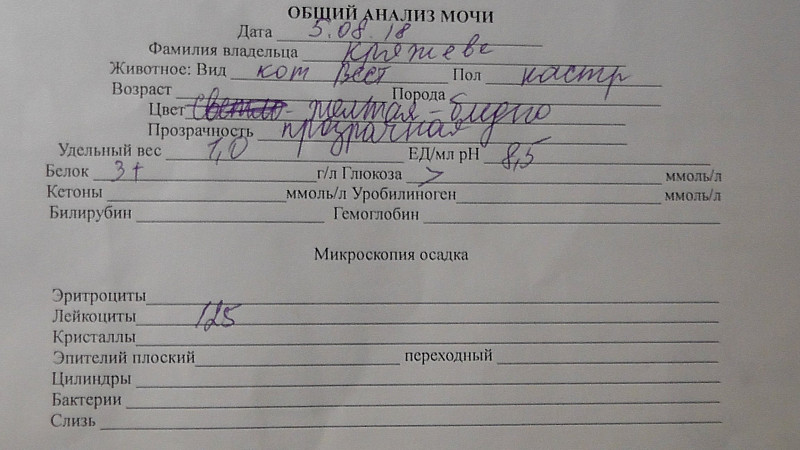 ОБЩИЙ АНАЛИЗ МОЧИ
Дата 5.08.18
Фамилия владельца Кряжеве
Животное: Вид кот Вест Пол кастр
Возраст Порода
Цвет светло - желтая - бледно
Прозрачность прозрачная
Удельный вес 1,0 ЕД/мл pH 8,5
Белок 3+ г/л Глюкоза > ммоль/л
Кетоны ммоль/л Уробилиноген ммоль/л
Билирубин Гемоглобин
Микроскопия осадка
Эритроциты
Лейкоциты 125
Кристаллы
Эпителий плоский переходный
Цилиндры
Бактерии
Слизь